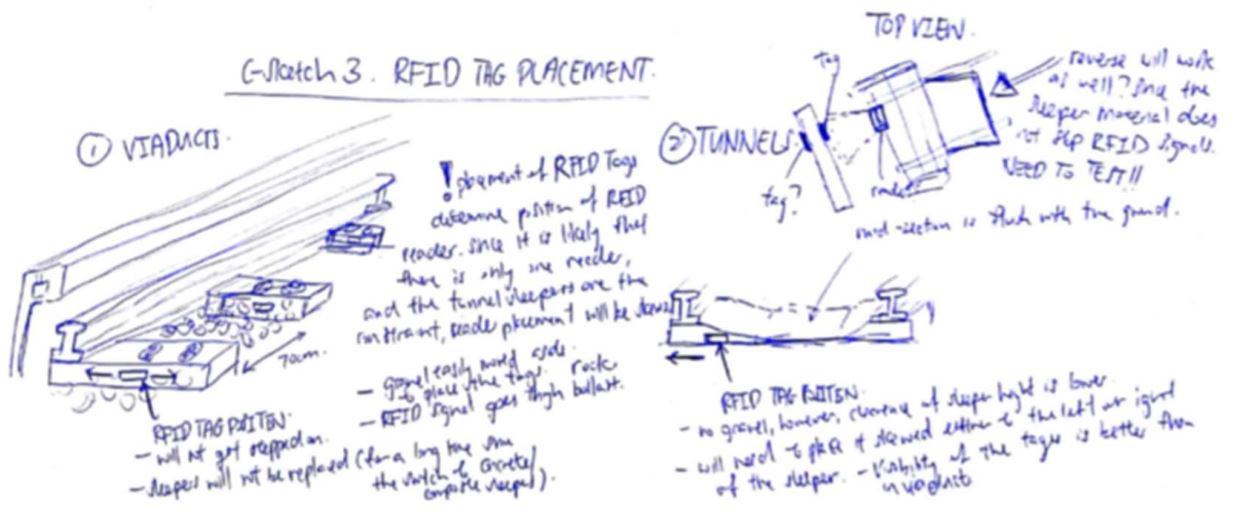 C-Sketch 3. RFID TAG PLACEMENT.
① VIADUCTS.
! placement of RFID Tags
determine position of RFID
reader. Since it is likely that
there is only one reader,
and the tunnel sleepers are the
constraint, reader placement will be
- Gravel easily moved aside
to place the tags.
- RFID signal goes through rock ballast.
70cm.
RFID TAG POSITION.
- will not get stepped on.
- sleepers will not be replaced (for a long time since
the switch to concrete/
composite sleepers).
TOP VIEW.
tag
reverse will work
as well? Since the
sleeper material does
not stop RFID signals.
NEED TO TEST!!
② TUNNELS.
tag?
reader
mid-section is flush with the ground.
RFID TAG POSITION.
- no gravel, however, clearance at sleeper height is lower.
- will need to place it skewed either to the left or right
of the sleeper. - Visibility of the tags is better than
in viaduct